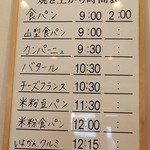 焼き上がり時間表
食パン 9:00 2:00
山型食パン 9:00 :
カンパーニュ 9:30 :
バタール 10:30 :
チーズフランス 10:30 :
米粉豆パン 11:30 :
米粉食パン 12:00 :
いよかんクルミ 12:15 :